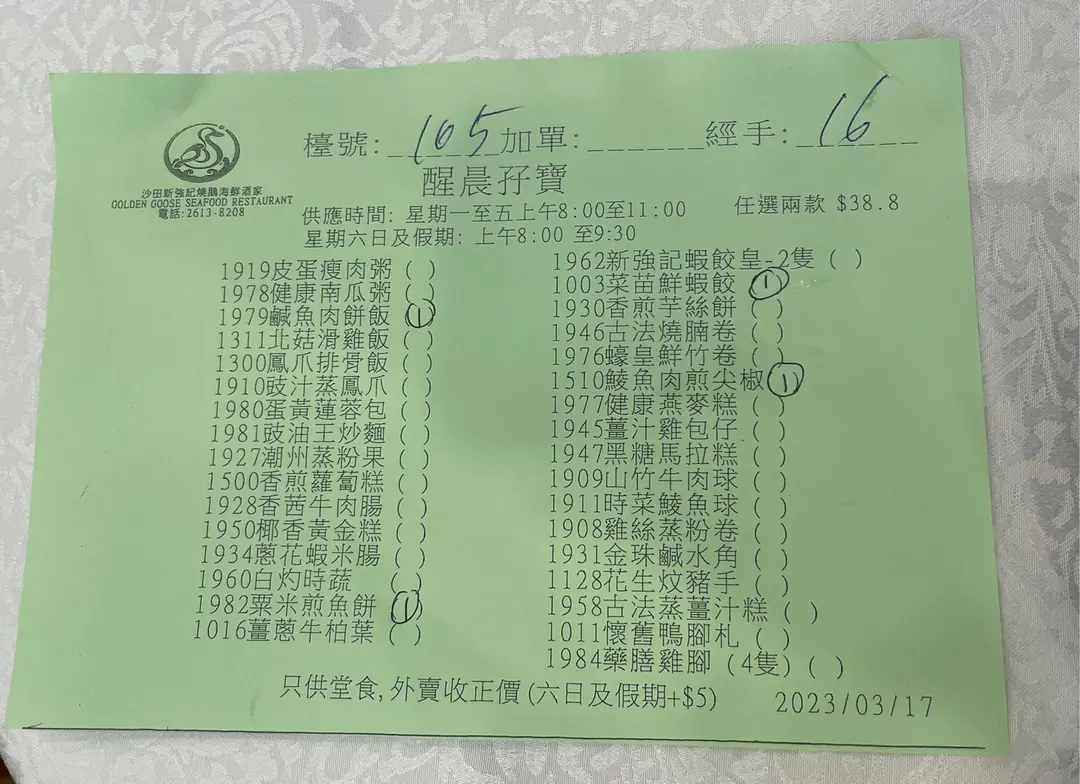 檯號:______105加單:______經手:______16
沙田新強記燒鵝海鮮酒家
GOLDEN GOOSE SEAFOOD RESTAURANT
電話:2613-8208
醒晨孖寶
供應時間: 星期一至五上午8:00至11:00
任選兩款 $38.8
星期六日及假期: 上午8:00 至9:30
1919皮蛋瘦肉粥 ( )
1978健康南瓜粥 ( )
1979鹹魚肉餅飯 (1)
1311北菇滑雞飯 ( )
1300鳳爪排骨飯 ( )
1910豉汁蒸鳳爪 ( )
1980蛋黃蓮蓉包 ( )
1981豉油王炒麵 ( )
1927潮州蒸粉果 ( )
1500香煎蘿蔔糕 ( )
1928香茜牛肉腸 ( )
1950椰香黃金糕 ( )
1934蔥花蝦米腸 ( )
1960白灼時蔬 ( )
1982粟米煎魚餅 (1)
1016薑蔥牛柏葉 ( )
1962新強記蝦餃皇-2隻 ( )
1003菜苗鮮蝦餃 (1)
1930香煎芋絲餅 ( )
1946古法燒腩卷 ( )
1976蠔皇鮮竹卷 ( )
1510鯪魚肉煎尖椒 (1)
1977健康燕麥糕 ( )
1945薑汁雞包仔 ( )
1947黑糖馬拉糕 ( )
1909山竹牛肉球 ( )
1911時菜鯪魚球 ( )
1908雞絲蒸粉卷 ( )
1931金珠鹹水角 ( )
1128花生炆豬手 ( )
1958古法蒸薑汁糕 ( )
1011懷舊鴨腳札 ( )
1984藥膳雞腳 (4隻) ( )
只供堂食, 外賣收正價 (六日及假期+$5)
2023/03/17